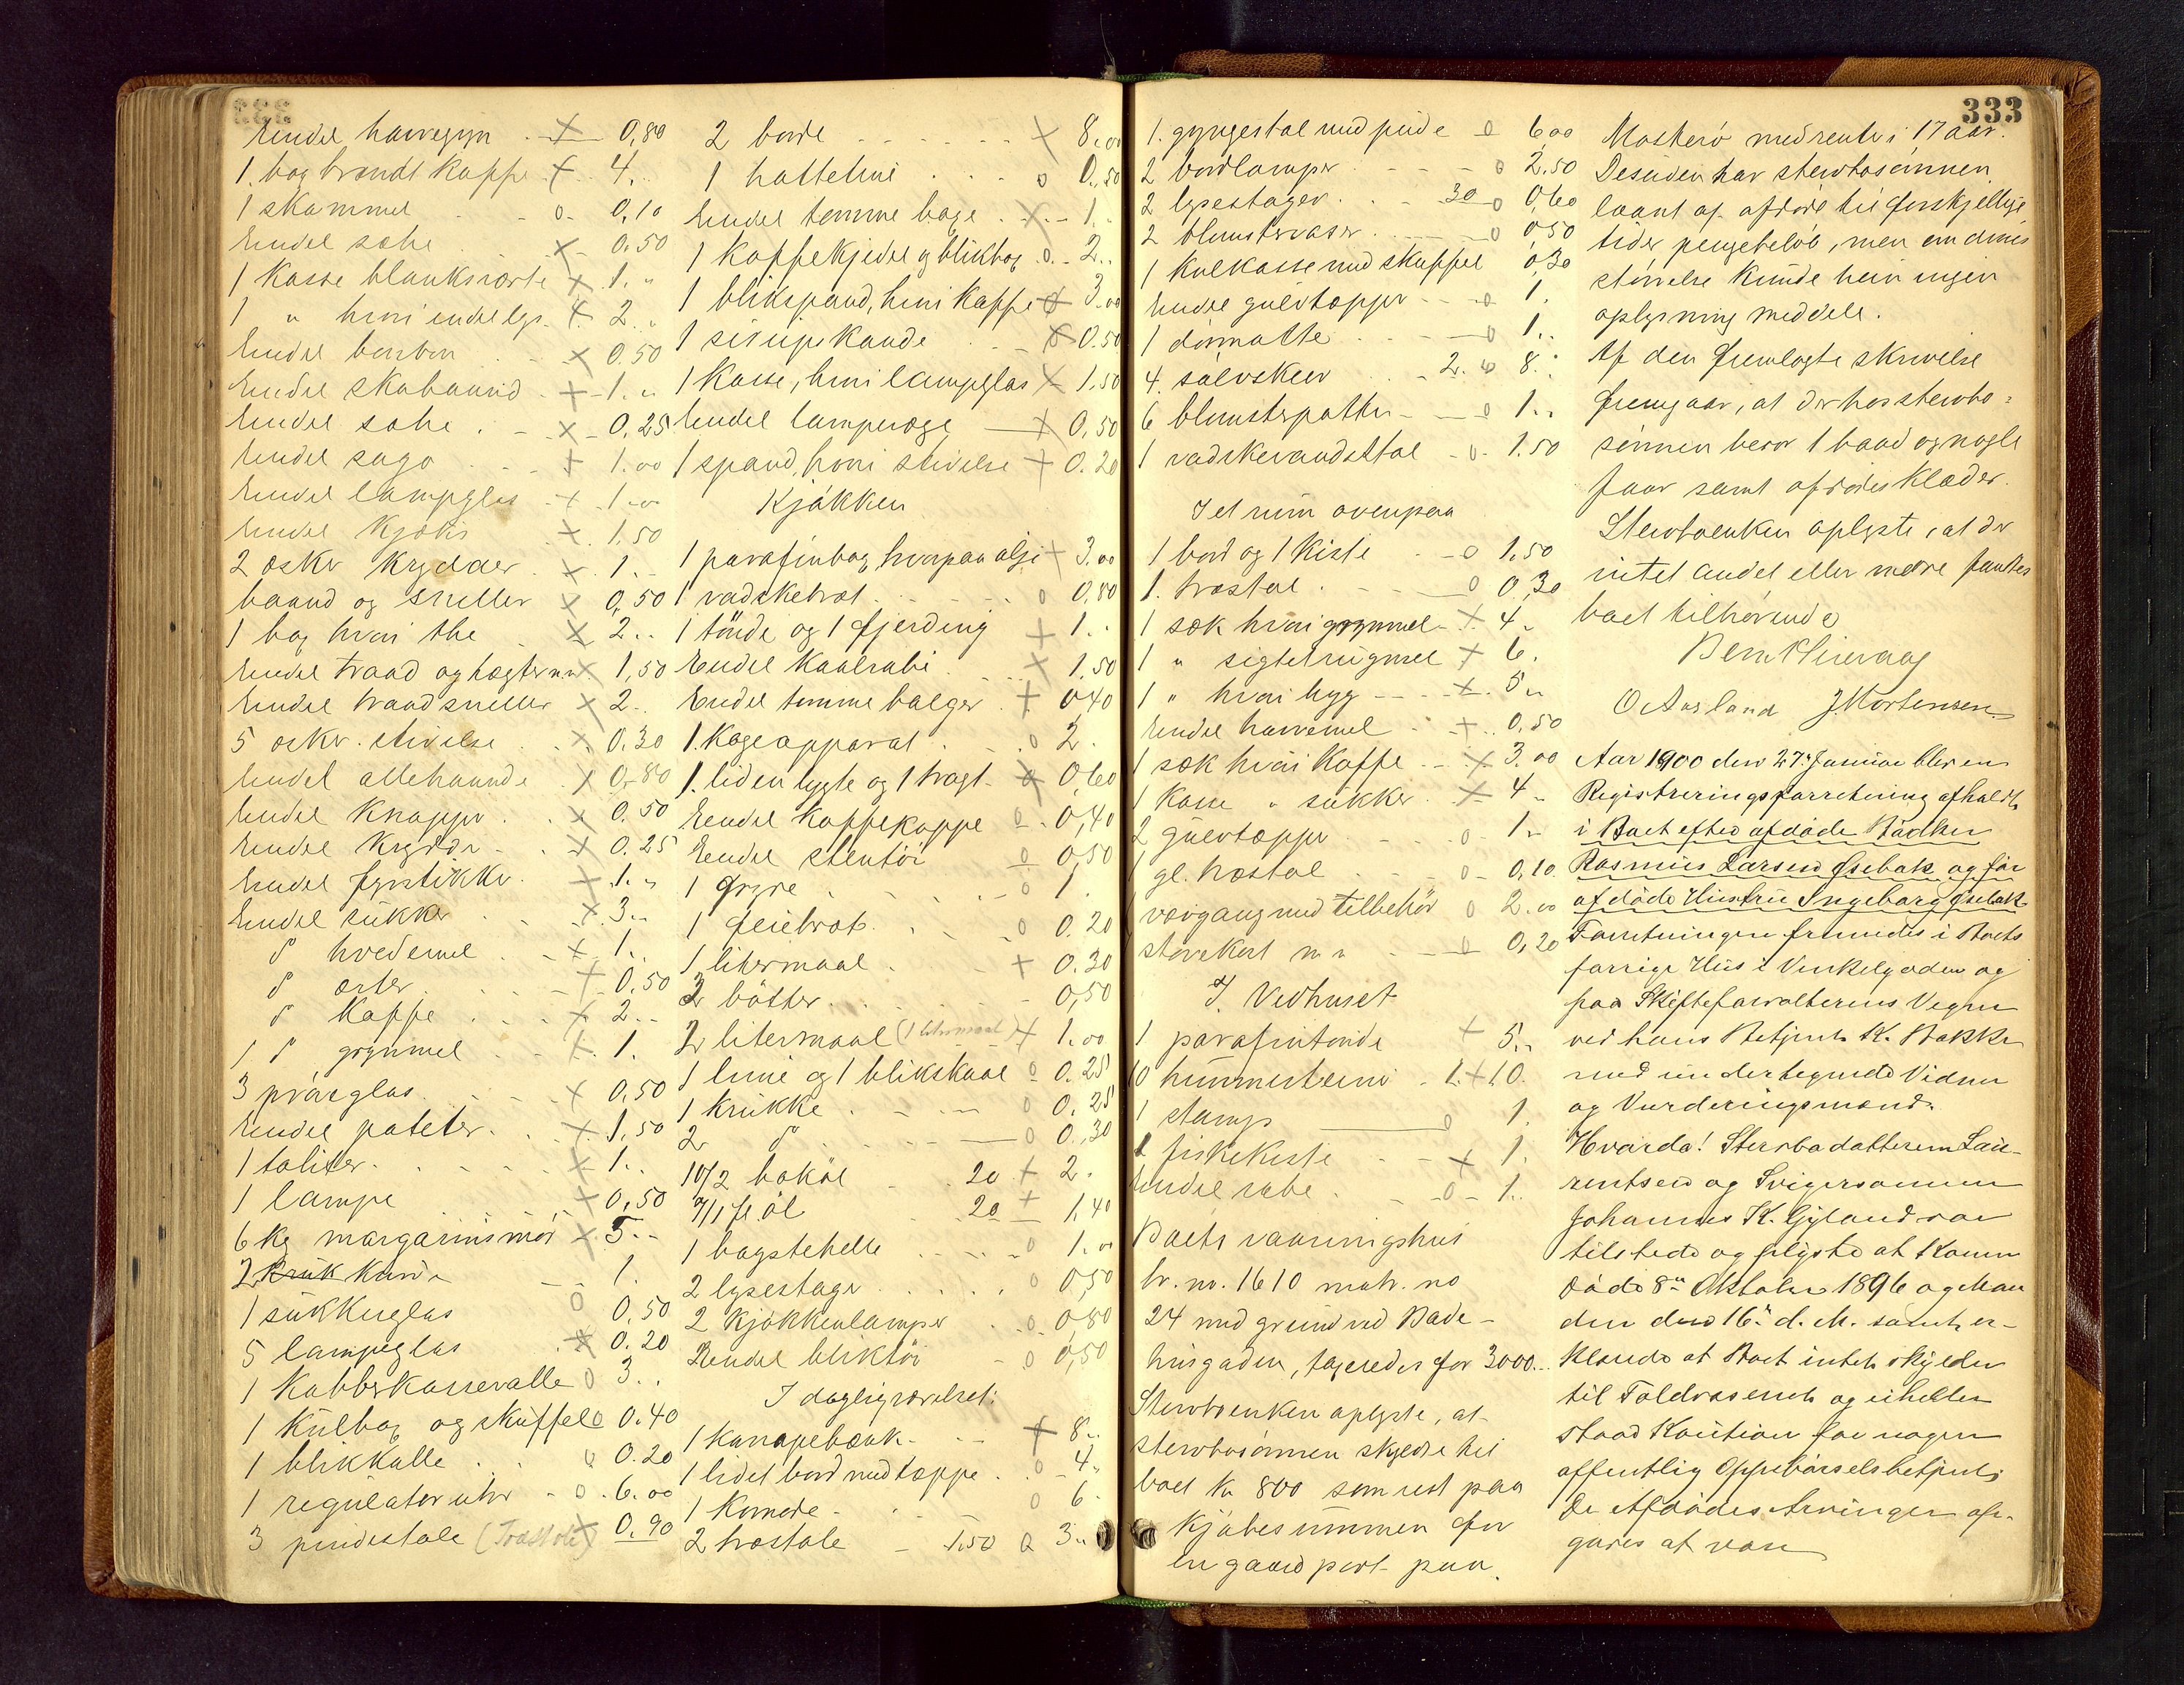 Endel havregryn x 0,80
1. bog brændt kaffe x 4.
1 skammel o 0,10
Endel sæbe x 0,50
1 kasse blanksværte x 1.
1 " hvori endel lys x 2.
Endel bonbon x 0.50
Endel skobaand x 1.
Endel sæbe x 0,25
Endel sago x 1.00
Endel lampeglas x 1.00
Endel kjæks x 1,50
2 æsker krydder x 1.
baand og sneller x 0,50
1 bog hvori the x 2..
Endel traad og hægter m m x 1,50
Endel traadsneller x 2..
5 æsker stivelse x 0.30
Endel allehaande x 0,80
Endel knapper x 0.50
Endel krydder x 0.25
Endel fyrstikker x 1.
Endel sukker x 3..
d° hvedemel x 1.
d° erter x 0,50
d° kaffe x 2..
1 d° grynmel x 1.
3 prøveglas x 0,50
Endel potteter x 1,50
1 talikker x 1..
1 lampe x 0,50
6 kg margarinsmør x 5..
2 kander 1.
1 sukkerglas o 0,50
5 lampeglas x 0.20
1 kobberkasserolle o 3..
1 kulbog og skuffel o 0.40
1 blikkalle o 0.20
1 regulator uhr o 6.00
3 pindestole (Træstole) x 0.90
2 borde x 8.00
1 hattetine o 0,50
Endel tomme bøge x 1.
1 kaffekjedel og blikbog o 2..
1 blikspand, hvori kaffe x 3.00
1 sirupskande x 0.50
1 kasse, hvori lampeglas x 1.50
Endel lampevæge x 0,50
1 spand, hvori stivelse x 0.20
Kjøkken
1 parafinbog, hvorpaa olje x 3.00
1 vadskebræt o 0,80
1 tønde og 1 fjerding x 1..
Endel kaalrabi x 1,50
Endel tomme balger x 0,40
1. kogeapparat o 2.
1. liden lygte og 1 tragt o 0,60
Endel kaffekoppe o 0,40
Endel stentøi o 0,50
1 gryde o 1.
1 feiebræt o 0.20
1 litermaal x 0.30
2 bøtter 0,50
2 litermaal (1 litermaal) x 1.00
1 line og 1 blikskaal o 0.25
1 krukke o 0.25
2 d° o 0.30
10/2 bokøl 20 x 2.
7/1 fl. øl 20 x 1,40
1 bagstehelle o 1.00
2 lysestager o 0,50
2 kjøkkenlamper o 0,80
Endel bliktøi o 0,50
I dagligværelset:
1 kanapebænk x 8..
1 lidet bord med tæppe o 4.
1 komode o 6.
2 træstole 1.50 o 3..
333
1. gyngestol med pude o 6,00
2 bordlamper o 2.50
2 lysestager 30 o 0,60
2 blomstervaser o 0,50
1 kulkasse med skuffel 0,30
Endel gulvtæpper o 1.
1 dørmatte o 1..
4 sølvskeer 2. o 8.
6 blomsterpotter o 1..
1 vadskevandsstol o 1.50
I et rum ovenpaa
1 bord og 1 kiste o 1,50
1. træstol o 0,30
1 sæk hvori grynmel x 4.
1 " sigtetrugmel x 6.
1 " hvori byg x 5..
Endel havremel x 0.50
1 sæk hvori kaffe x 3.00
1 kasse " sukker x 4.
2 gulvtæpper o 1..
1 gl. træstol o 0,10
1 vævgang med tilbehør o 2.00
støvekost m m o 0,20
I Vedhuset
1 parafintønde x 5..
10 hummerteiner 1. x 10.
1 stamp o 1.
1 fiskekiste x 1.
Endel rabe o 1..
Boets vaaningshus
br. no. 1610 matr. no
24 med grund ved Bade-
husgaden, taxeredes for 3000..
Stervboenken oplyste, at
stervbosønnen skylder til
boet Kr 800 som rest paa
kjøbesummen for
en gaard part paa
Mosterø med renter i 17 aar.
Desuden har stervbosønnen
laant af afdøde til forskjellige
tider pengebeløb, men om dines
størrelse kunde hun ingen
oplysning meddele.
Af den fremlagte skrivelse
fremgaar, at der hos stervbo-
sønnen beror 1 baad og nogle
faar samt afdødes klæder.
Stervboenken oplyste, at der
intet andet eller mere fandtes
boet tilhørende
O Aasland J. Mortensen
Aar 1900 den 27. Januar blev en
Registreringsforretning afholdt
i Boet efter afdøde Bødker
Rasmus Larsen Grebak og før
afdøde Hustru Ingeborg Grebak
Forretningen fremmedes i Boets
forrige Hus i Vinkelgaden og
paa Skifteforvalterens Vegne
ved hans Betjent K. Bakke
med undertegnede Vidner
og Vurderingsmænd.
Hvorda! Stervbodatteren Lau-
rentsen og Svigersønnen
Johannes K. Gyland var
tilstede og oplyste at Konen
døde 8de Oktober 1896 og Man
den den 16de d. M. samt er-
klærede at Boet intet skylder
til Toldvæsenet og eiheller
staar Kaution for nogen
offentlig Oppebørselsbetjent.
De Afdødes Arvinger op-
gaves at være